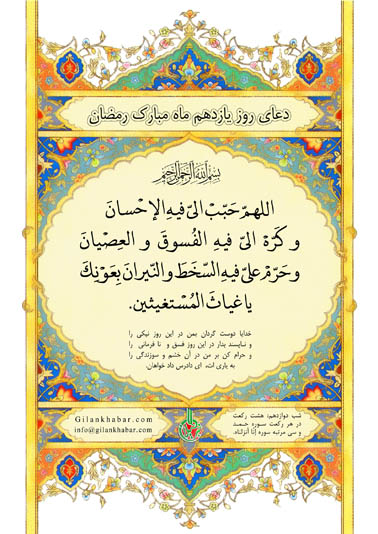 دعای روز یازدهم ماه مبارک رمضان
بسم الله الرحمن الرحیم
اللهمّ حَبّبْ الیّ فیهِ الإحْسانَ
و کَرّهْ الیّ فیهِ الفُسوقَ و العِصْیانَ
وحَرّمْ علیّ فیهِ السّخَطَ والنّیرانَ بِعَوْنِکَ
یا غیاثَ المُسْتغیثین.
خدایا دوست گردان بمن در این روز نیکی را
و ناپسند بدار در این روز فسق و نا فرمانی را
و حرام کن بر من در آن خشم و سوزندگی را
به یاری ات، ای دادرس داد خواهان.
Gilankhabar.com
info@gilankhabar.com
شب دوازدهم: هشت رکعت
در هر رکعت سوره حمد
و سی مرتبه سوره إنّا أنزلناه.